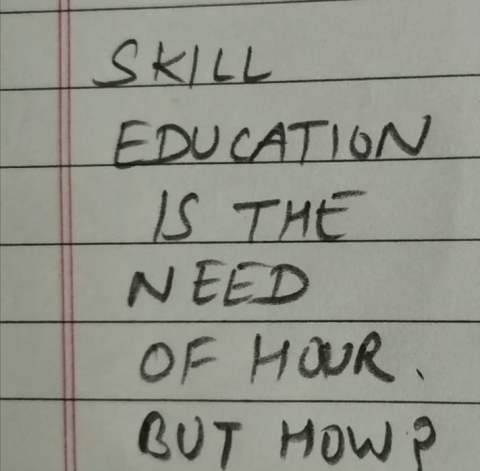 SKILL
EDUCATION
IS THE
NEED
OF HOUR.
BUT HOW?